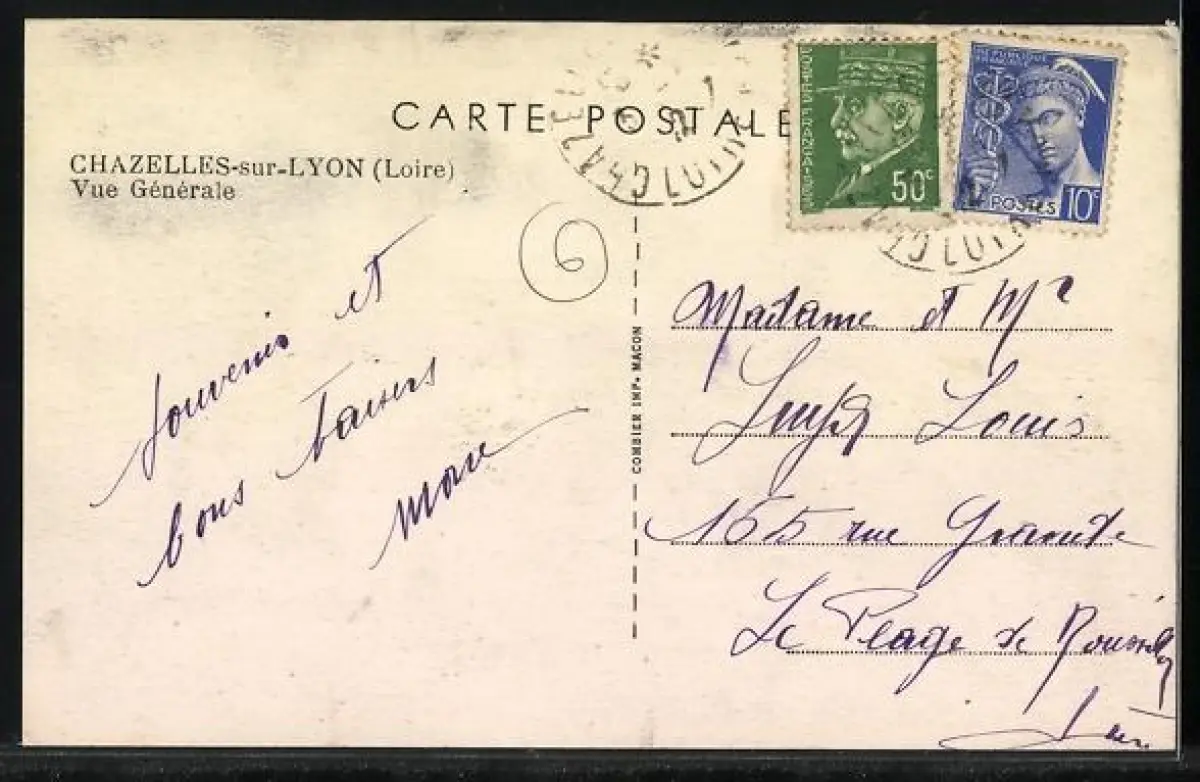 CARTE POSTALE
CHAZELLES-sur-LYON (Loire)
Vue Générale
6
POSTES FRANÇAISES
50c
REPUBLIQUE FRANÇAISE
POSTES 10c
CHAZELLES
LOIRE
Souvenir et
bons baisers
COMBIER IMP. MACON
Madame et Mr
Louis
165 rue Grande
Le Péage de Roussillon
Isère